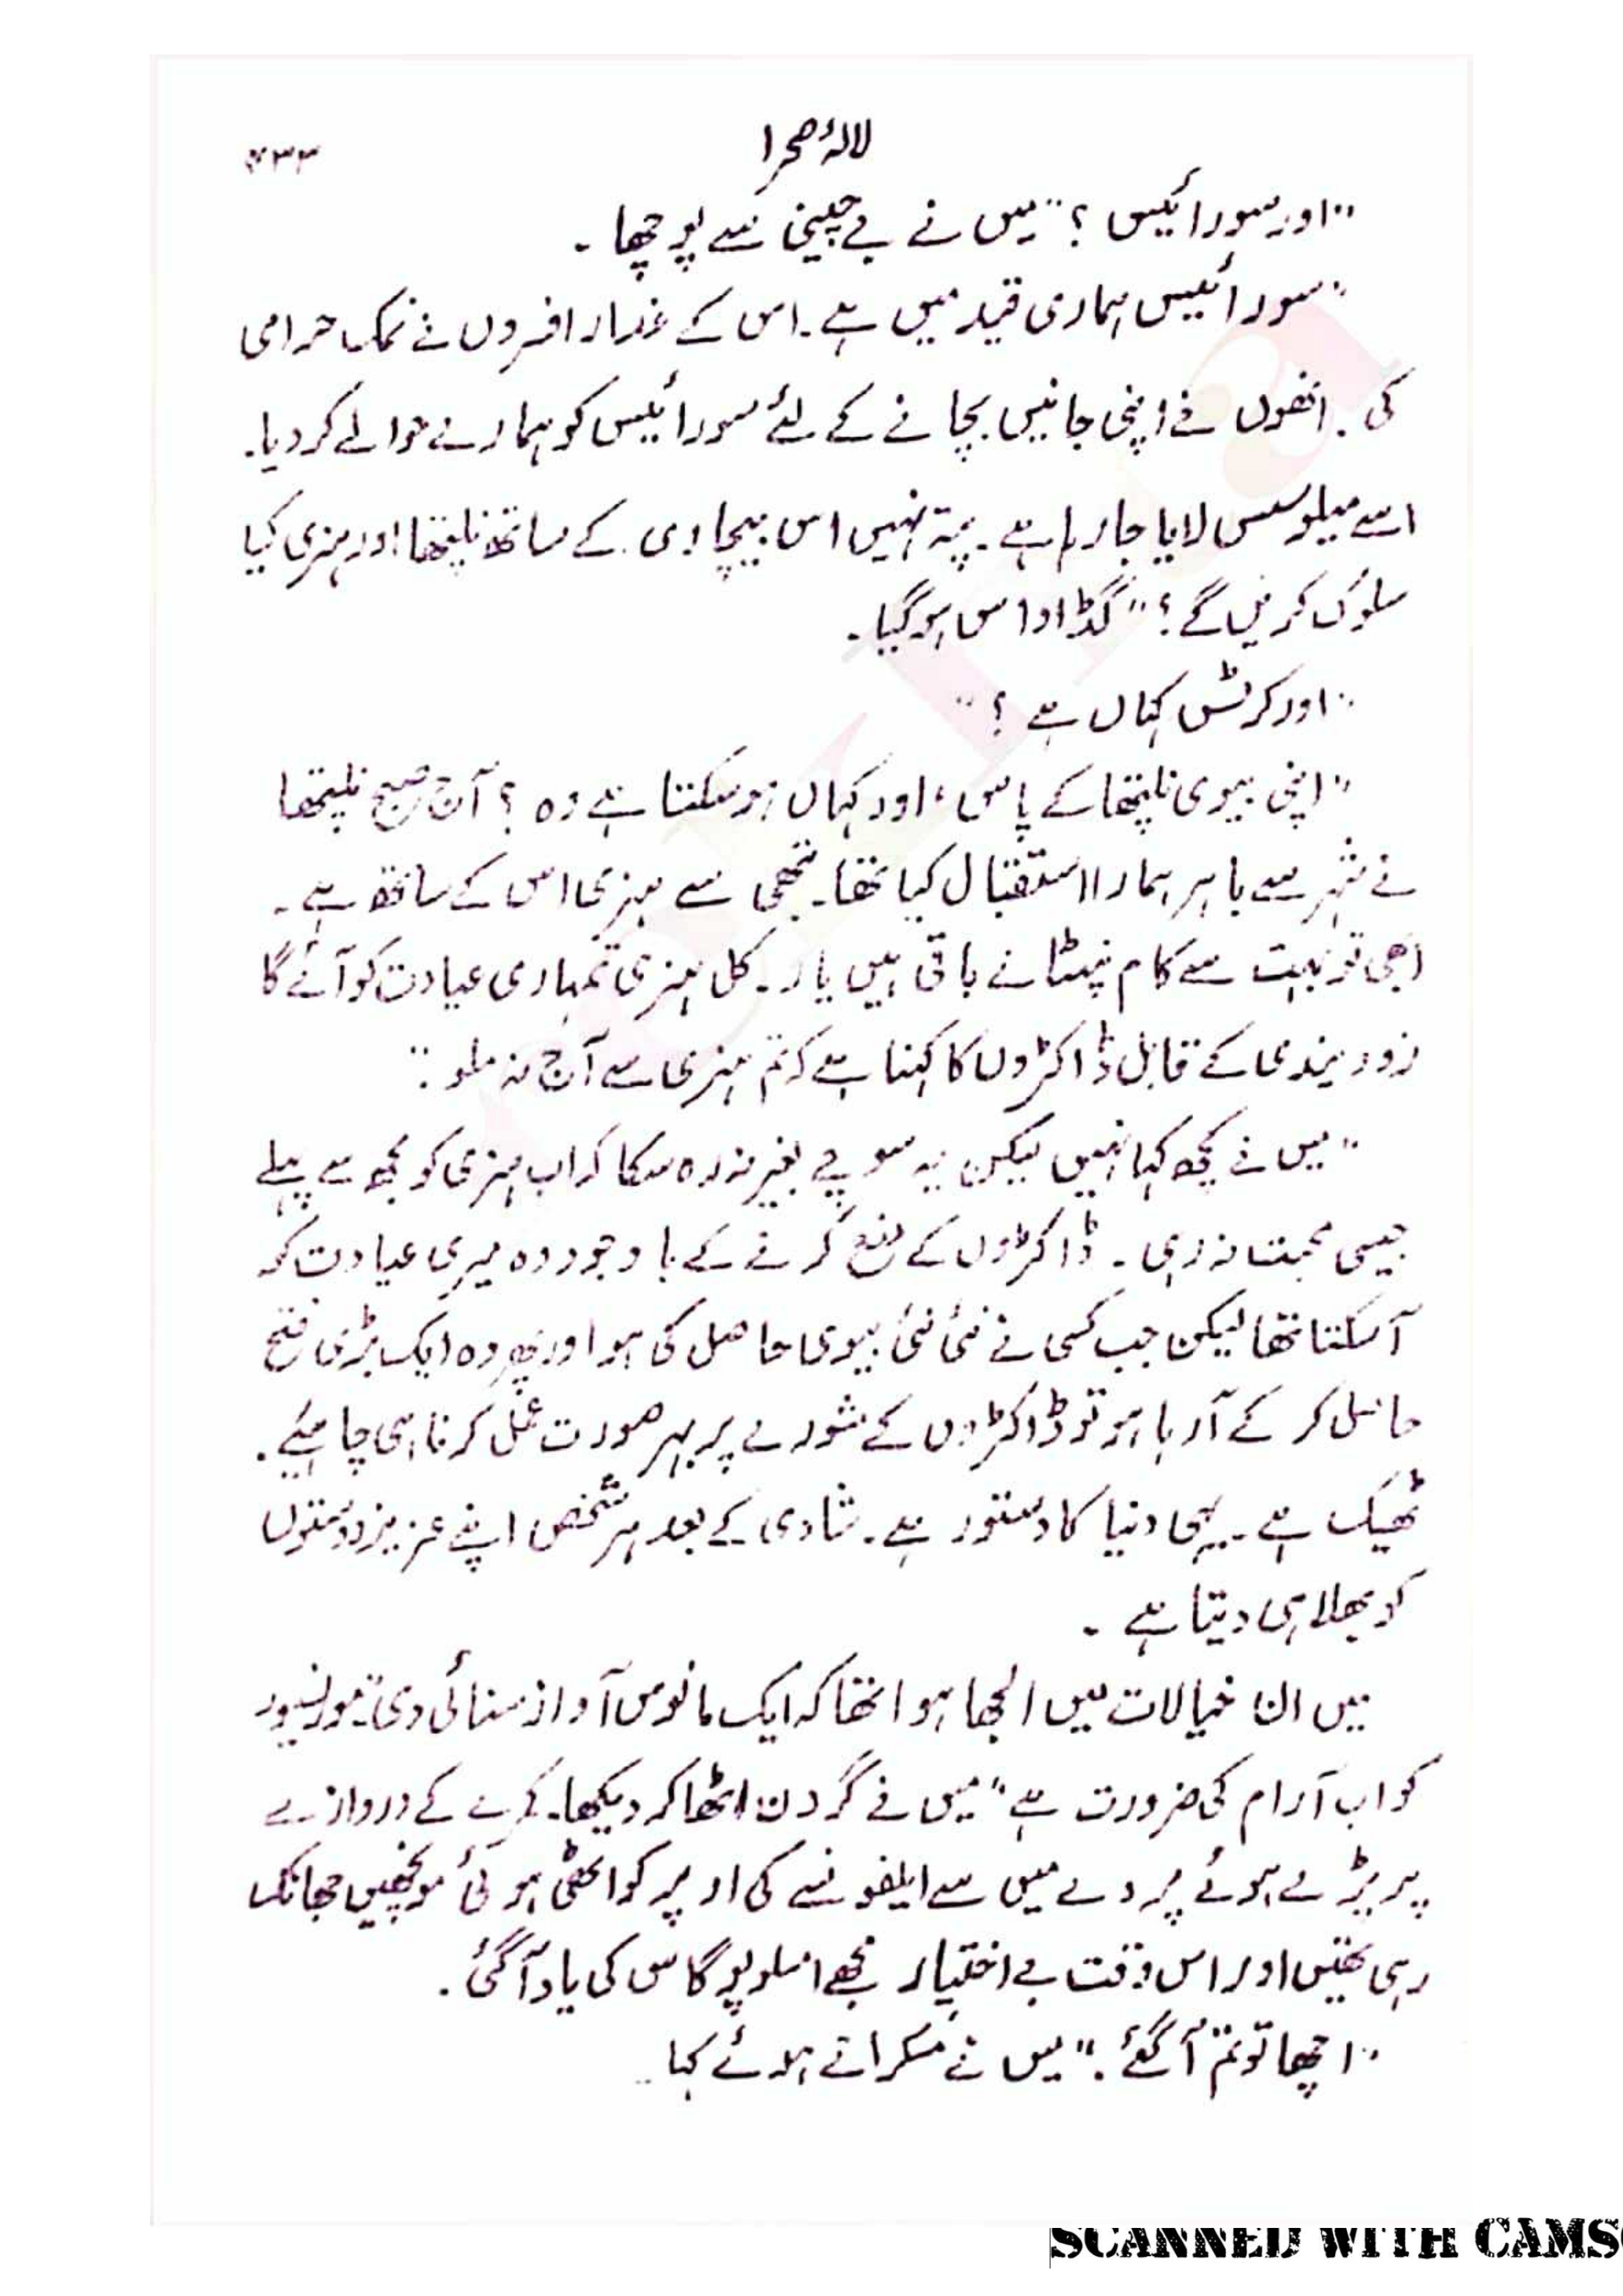 لالۂ صحرا
۴۳۳
"اور سورائیس؟" میں نے بے چینی سے پوچھا۔
"سورائیس ہماری قید میں ہے۔ اس کے غدار افسروں نے نمک حرامی
کی۔ انھوں نے اپنی جانیں بچانے کے لئے سورائیس کو ہمارے حوالے کر دیا۔
اسے میلوسس لایا جا رہا ہے۔ پتہ نہیں اس بیچاری کے ساتھ نلپتھا اور ہنری کیا
سلوک کریں گے؟" گڈ اداس ہو گیا۔
"اور کرٹس کہاں ہے؟"
"اپنی بیوی نلپتھا کے پاس، اور کہاں ہو سکتا ہے وہ؟ آج صبح نلپتھا
نے شہر سے باہر ہمارا استقبال کیا تھا۔ تبھی سے ہنری اس کے ساتھ ہے۔
ابھی تو بہت سے کام نپٹانے باقی ہیں یار۔ کل ہنری تمہاری عیادت کو آئے گا
زوویندی کے قابل ڈاکٹروں کا کہنا ہے کہ تم ہنری سے آج نہ ملو۔"
"میں نے کچھ کہا نہیں لیکن یہ سوچے بغیر نہ رہ سکا کہ اب ہنری کو مجھ سے پہلے
جیسی محبت نہ رہی۔ ڈاکٹروں کے منع کرنے کے باوجود وہ میری عیادت کو
آ سکتا تھا لیکن جب کسی نے نئی نئی بیوی حاصل کی ہو اور پھر وہ ایک بڑی فتح
حاصل کر کے آ رہا ہو تو ڈاکٹروں کے مشورے پر بہر صورت عمل کرنا ہی چاہیئے۔
ٹھیک ہے۔ یہی دنیا کا دستور ہے۔ شادی کے بعد ہر شخص اپنے عزیز دوستوں
کو بھلا ہی دیتا ہے۔
میں ان خیالات میں الجھا ہوا تھا کہ ایک مانوس آواز سنائی دی "مونسیور
کو اب آرام کی ضرورت ہے" میں نے گردن اٹھا کر دیکھا۔ کمرے کے دروازے
پر پڑے ہوئے پردے میں سے ایلفونسے کی اوپر کو اٹھی ہوئی مونچھیں جھانک
رہی تھیں اور اس وقت بے اختیار مجھے امسلوپوگاس کی یاد آ گئی۔
"اچھا تو تم آ گئے۔" میں نے مسکراتے ہوئے کہا۔
SCANNED WITH CAMS